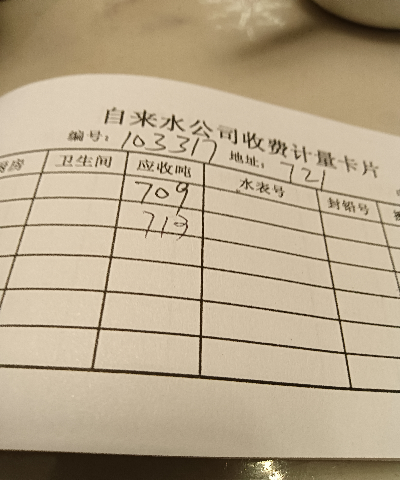 自来水公司收费计量卡片
编号: 103317 地址: 721
厨房 卫生间 应收吨 水表号 封铅号
709
713